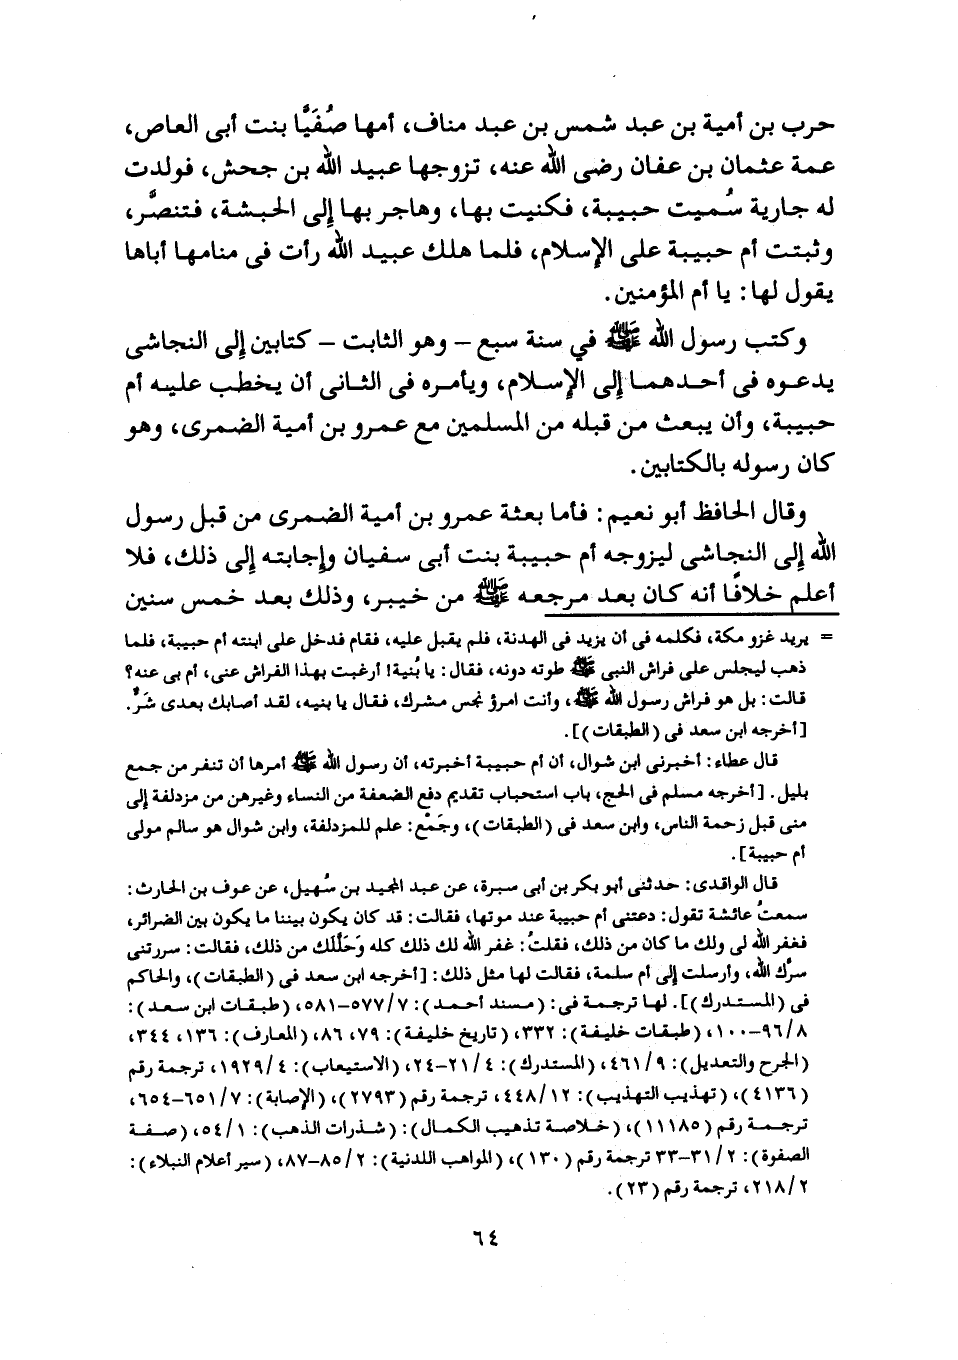 حرب بن أمية بن عبد شمس بن عبد مناف، أمها صُفَيًّا بنت أبى العاص،
عمة عثمان بن عفان رضى الله عنه، تزوجها عبيد الله بن جحش، فولدت
له جارية سُميت حبيبة، فكنيت بها، وهاجر بها إلى الحبشة، فتنصَّر،
وثبتت أم حبيبة على الإسلام، فلما هلك عبيد الله رأت فى منامها أباها
يقول لها: يا أم المؤمنين.
وكتب رسول الله ﷺ في سنة سبع – وهو الثابت – كتابين إلى النجاشى
يدعوه فى أحدهما إلى الإسلام، ويأمره فى الثانى أن يخطب عليه أم
حبيبة، وأن يبعث من قبله من المسلمين مع عمرو بن أمية الضمرى، وهو
كان رسوله بالكتابين.
وقال الحافظ أبو نعيم: فأما بعثة عمرو بن أمية الضمرى من قبل رسول
الله إلى النجاشى ليزوجه أم حبيبة بنت أبى سفيان وإجابته إلى ذلك، فلا
أعلم خلافًا أنه كان بعد مرجعه ﷺ من خيبر، وذلك بعد خمس سنين
= يريد غزو مكة، فكلمه فى أن يزيد فى الهدنة، فلم يقبل عليه، فقام فدخل على ابنته أم حبيبة، فلما
ذهب ليجلس على فراش النبى ﷺ طوته دونه، فقال: يا بُنية! أرغبت بهذا الفراش عنى، أم بى عنه؟
قالت: بل هو فراش رسول الله ﷺ، وأنت امرؤ نجس مشرك، فقال يا بنيه، لقد أصابك بعدى شَرٌّ.
[أخرجه ابن سعد فى (الطبقات)].
قال عطاء: أخبرنى ابن شوال، أن أم حبيبة أخبرته، أن رسول الله ﷺ أمرها أن تنفر من جمع
بليل. [أخرجه مسلم فى الحج، باب استحباب تقديم دفع الضعفة من النساء وغيرهن من مزدلفة إلى
منى قبل زحمة الناس، وابن سعد فى (الطبقات)، وجَمْع: علم للمزدلفة، وابن شوال هو سالم مولى
أم حبيبة].
قال الواقدى: حدثنى أبو بكر بن أبى سبرة، عن عبد المجيد بن سُهيل، عن عوف بن الحارث:
سمعتُ عائشة تقول: دعتنى أم حبيبة عند موتها، فقالت: قد كان يكون بيننا ما يكون بين الضرائر،
فغفر الله لى ولك ما كان من ذلك، فقلتُ: غفر الله لك ذلك كله وَحَلَّلك من ذلك، فقالت: سررتنى
سرَّك الله، وأرسلت إلى أم سلمة، فقالت لها مثل ذلك: [أخرجه ابن سعد فى (الطبقات)، والحاكم
فى (المستدرك)]. لها ترجمة فى: (مسند أحمد): ٧/ ٥٧٧–٥٨١، (طبقات ابن سعد):
٨/ ٩٦–١٠٠، (طبقات خليفة): ٣٣٢، (تاريخ خليفة): ٧٩، ٨٦، (المعارف): ١٣٦، ٣٤٤،
(الجرح والتعديل): ٩/ ٤٦١، (المستدرك): ٤/ ٢١–٢٤، (الاستيعاب): ٤/ ١٩٢٩، ترجمة رقم
(٤١٣٦)، (تهذيب التهذيب): ١٢/ ٤٤٨، ترجمة رقم (٢٧٩٣)، (الإصابة): ٧/ ٦٥١–٦٥٤،
ترجمة رقم (١١١٨٥)، (خلاصة تذهيب الكمال): (شذرات الذهب): ١/ ٥٤، (صفة
الصفوة): ٢/ ٣١–٣٣ ترجمة رقم (١٣٠)، (المواهب اللدنية): ٢/ ٨٥–٨٧، (سير أعلام النبلاء):
٢/ ٢١٨، ترجمة رقم (٢٣).
٦٤